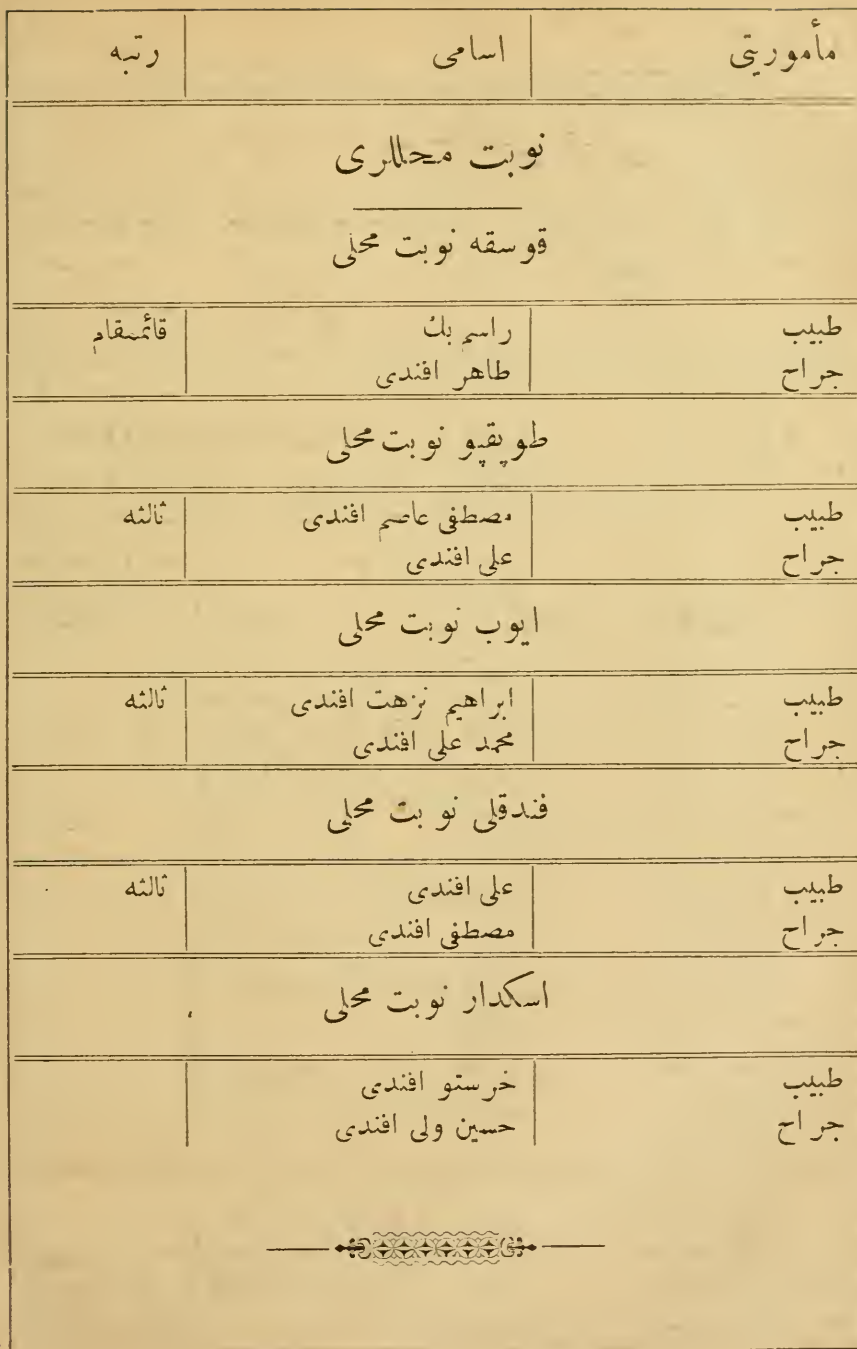 مأموریتی اسامی رتبه
نوبت محللری
قوسقه نوبت محلی
طبیب راسم بك قائممقام
جراح طاهر افندی
طوپقپو نوبت محلی
طبیب مصطفی عاصم افندی ثالثه
جراح علی افندی
ایوب نوبت محلی
طبیب ابراهیم نزهت افندی ثالثه
جراح محمد علی افندی
فندقلی نوبت محلی
طبیب علی افندی ثالثه
جراح مصطفی افندی
اسكدار نوبت محلی
طبیب خرستو افندی
جراح حسین ولی افندی